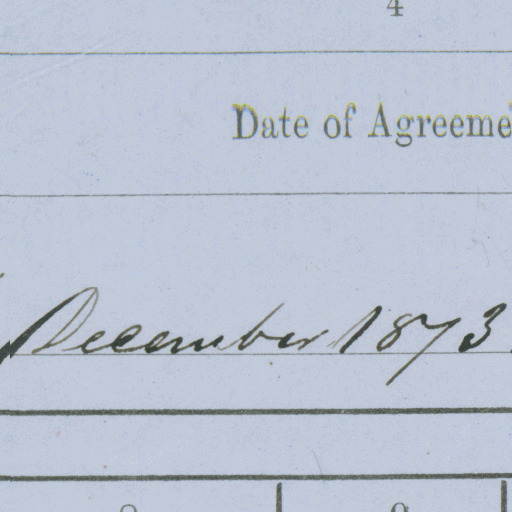 4
Date of Agreeme
December 1873